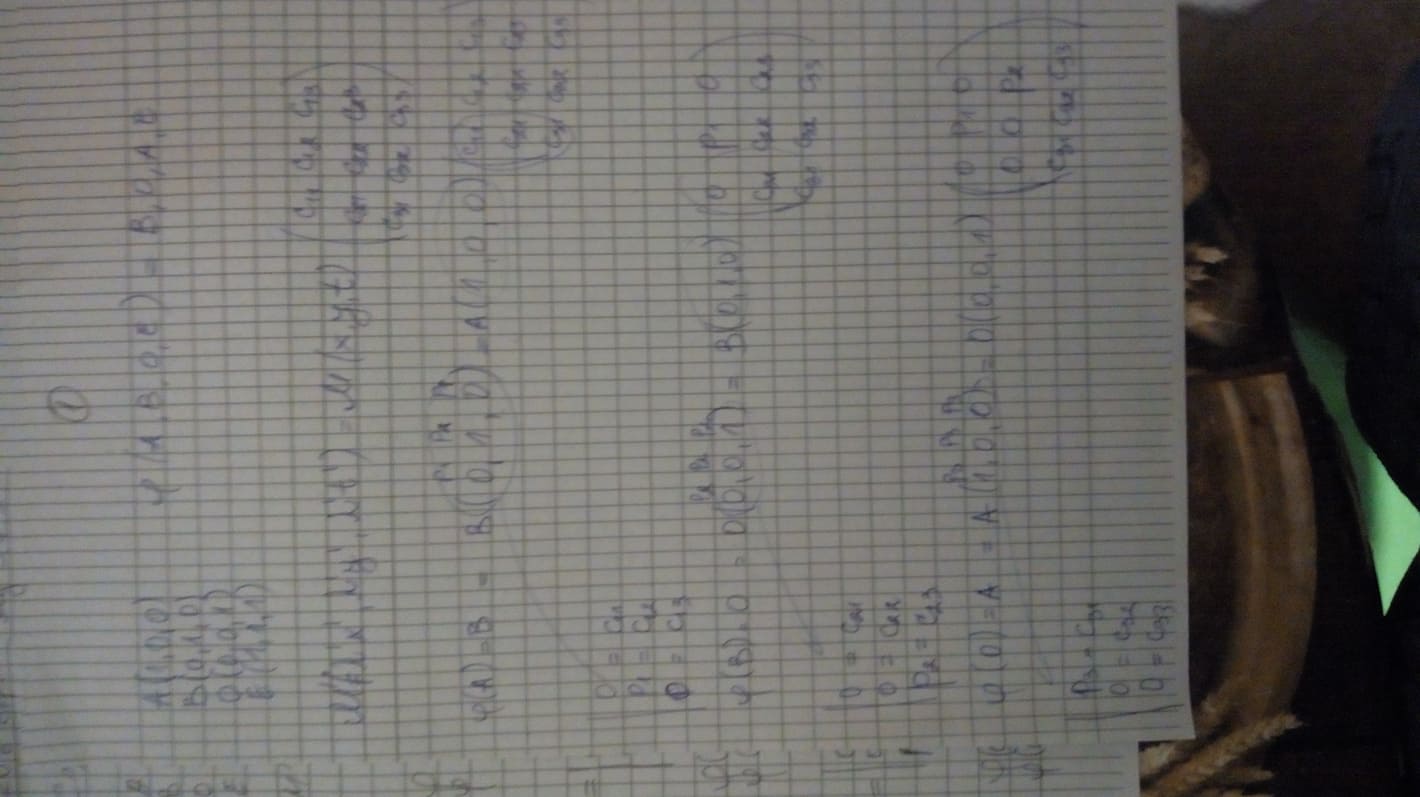 ①
A(1,0,0) φ(A,B,O,E) = B,O,A,E
B(0,1,0)
O(0,0,1)
E(1,1,1)
M(λx', λy', λt') = M(x,y,t) (c11 c12 c13
c21 c22 c23
c31 c32 c33)
φ(A)=B = B(0,1,0) = A(1,0,0) (c11 c12 c13
p1 p1 p1
c21 c22 c23
c31 c32 c33)
0 = c11
p1 = c12
0 = c13
φ(B)=O = O(0,0,1) = B(0,1,0) (0 p1 0
p2 p2 p2
c21 c22 c23
c31 c32 c33)
0 = c21
0 = c22
p2 = c23
φ(O)=A = A(1,0,0) = O(0,0,1) (0 p1 0
p3 p3 p3
0 0 p2
c31 c32 c33)
p3 = c31
0 = c32
0 = c33